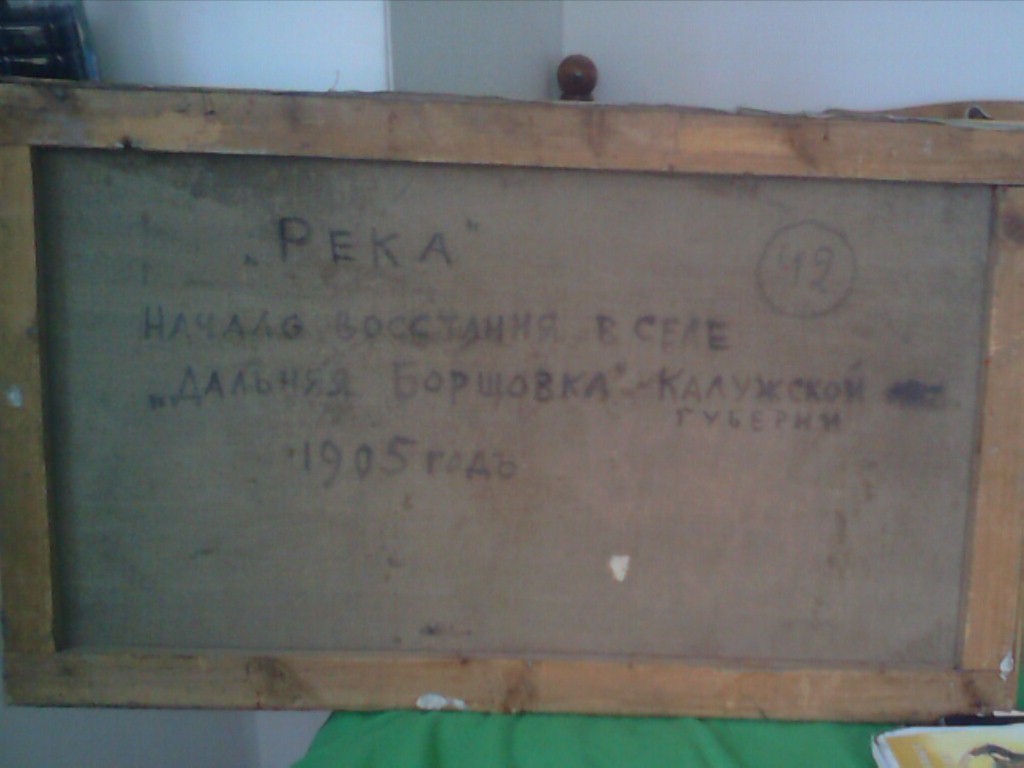 „РЕКА"
42
НАЧАЛО ВОССТАНИЯ В СЕЛЕ
„ДАЛЬНЯЯ БОРЩОВКА" - КАЛУЖСКОЙ
ГУБЕРНИ
1905 годъ